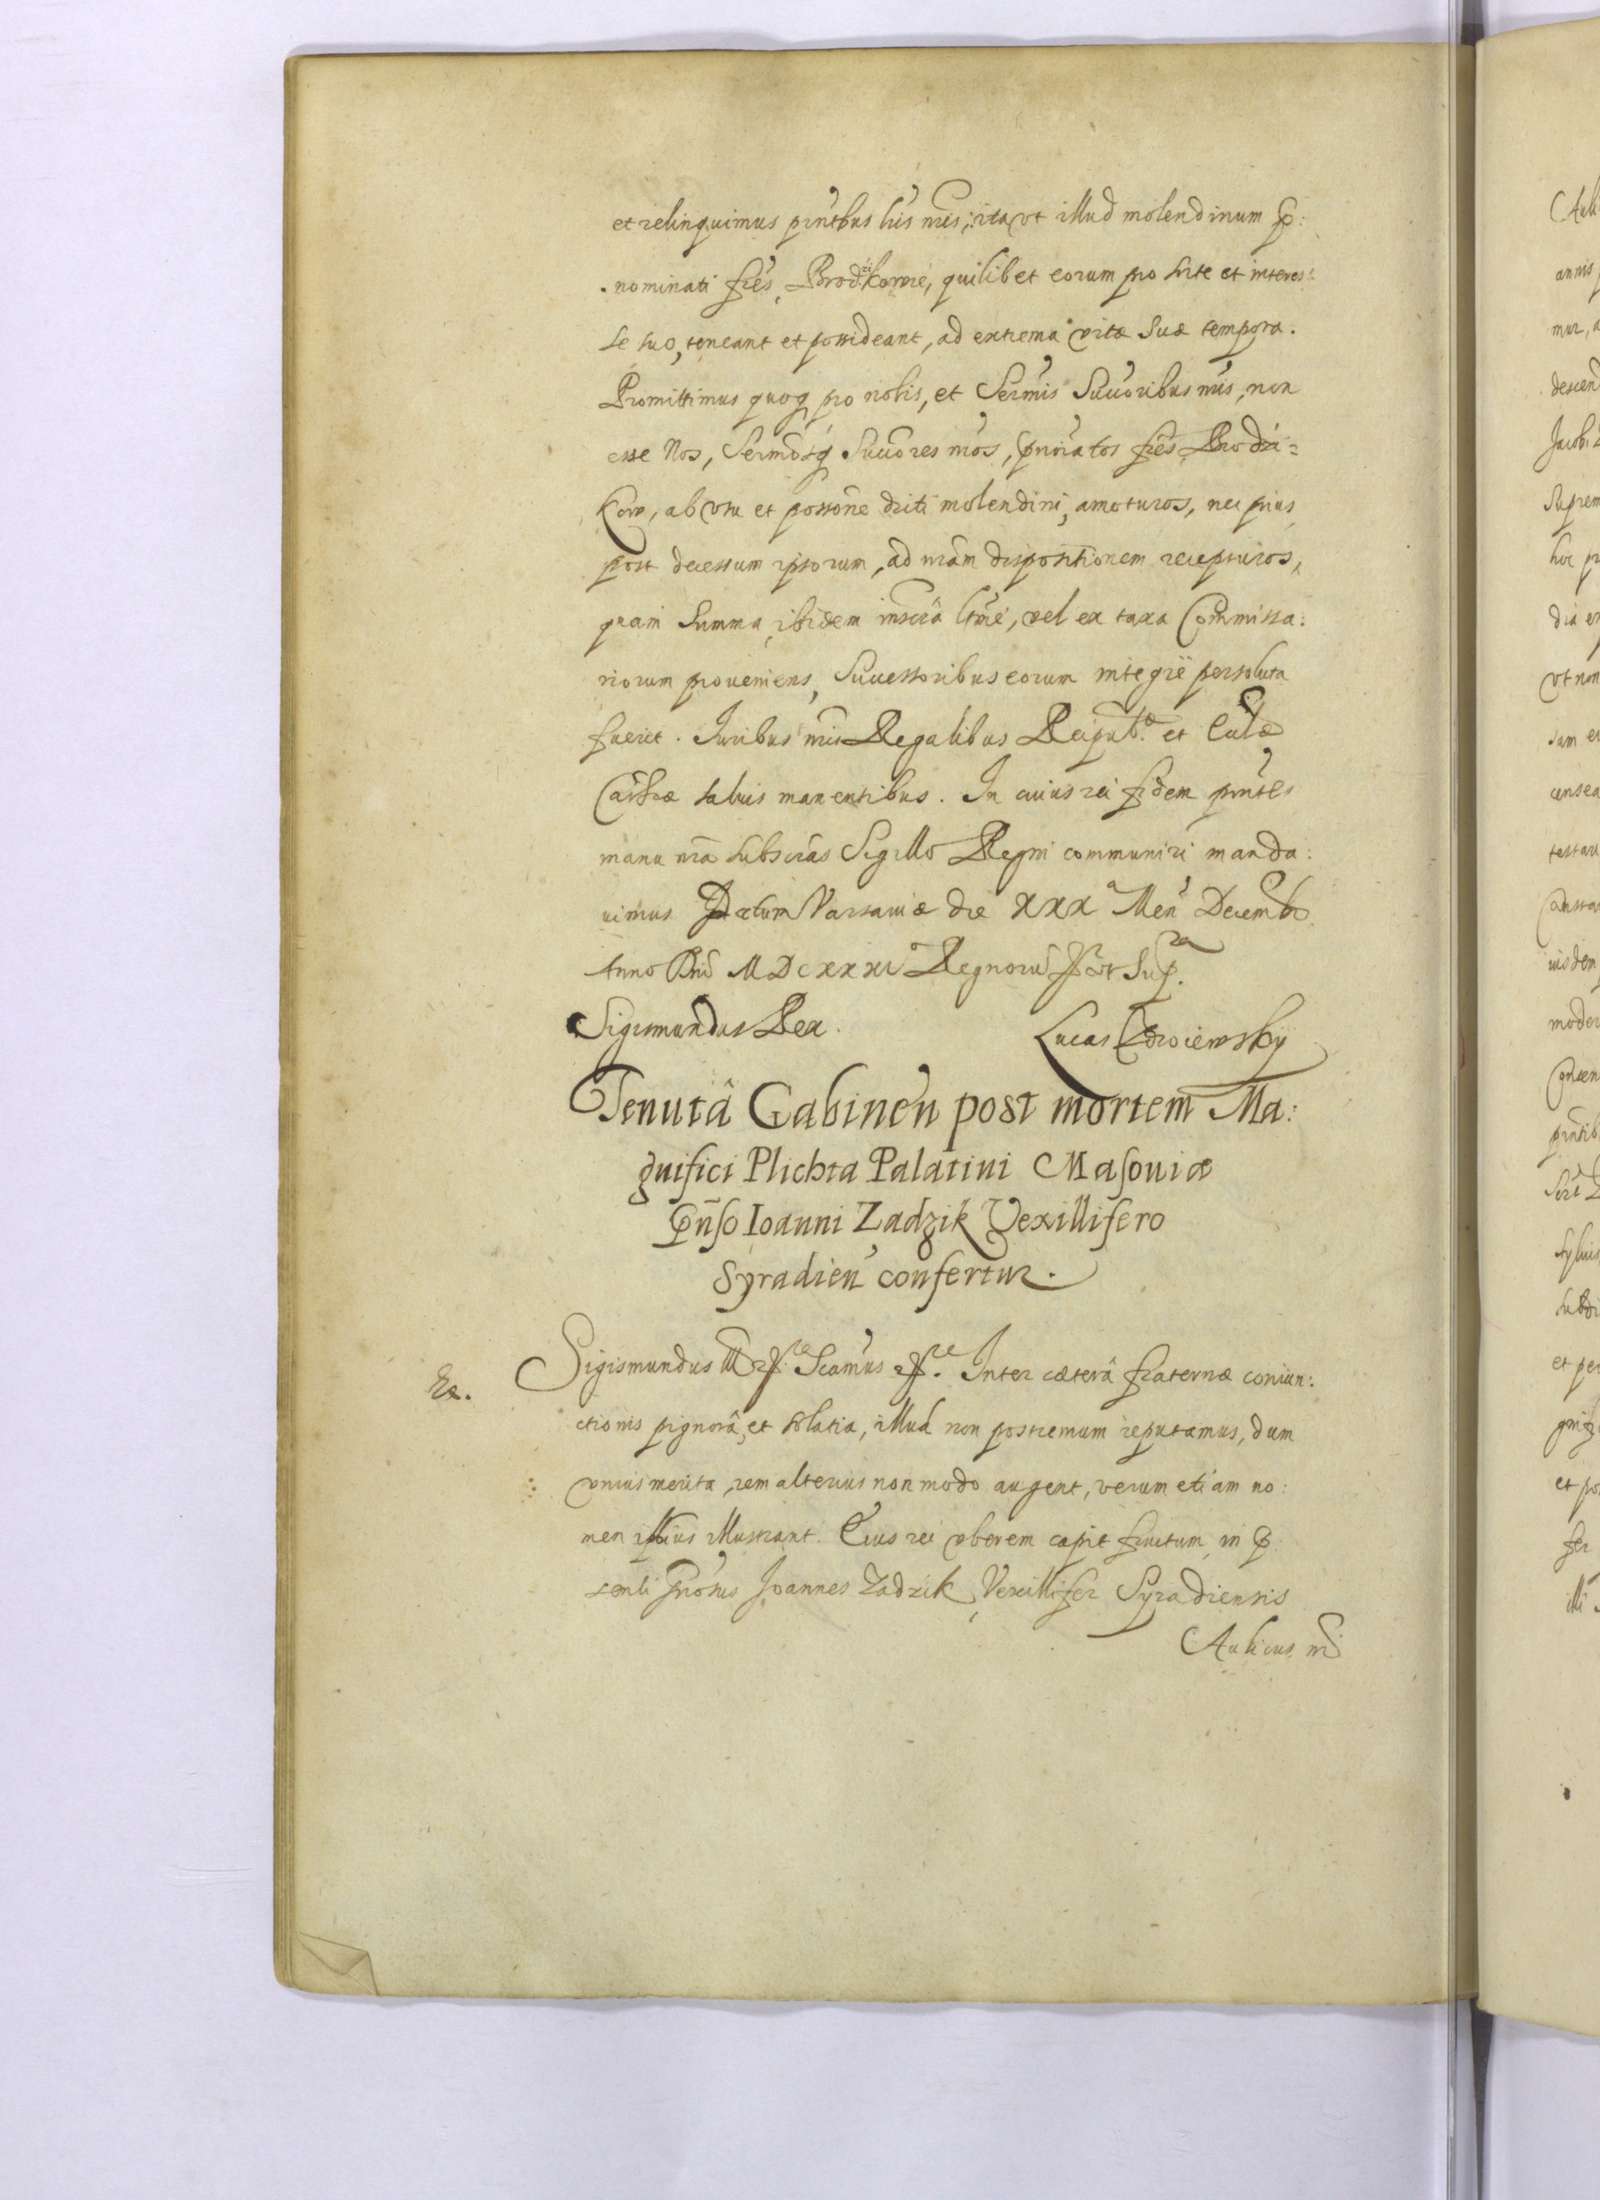 et relinquimus pntbus lris nris, ita vt illud molendinum p:
nominati fres, Brodzkowie, quilibet eorum pro sorte et interes:
se suo, teneant et possideant, ad extrema vitæ suæ tempora.
Promittimus quoq pro nobis, et Sermis Succoribus nris, non
esse Nos, Sermosq Succores nros, pnoiatos fres Brodzi=
kow, ab vsu et possone dicti molendini, amoturos, nec prius
post decessum ipsorum, ad nram dispositionem recepturos,
quam summa, ibidem inscra ltme, vel ex taxa Commissa:
riorum proueniens, Successoribus eorum integre persoluta
fuerit. Iuribus nris Regalibus Reipub. et Ecclæ
Cathcæ saluis manentibus. In cuius rei fidem pntes
manu nra subscras Sigillo Regni communiri manda:
uimus Datum Varsauiæ die XXX Men Decemb
Anno Dni MDCXXXI Regnoru vt Supra.
Sigismundus Rex.
Lucas
Tenuta Gabinen post mortem Ma:
gnifici Plichta Palatini Masouiæ
Gnso Ioanni Zadzik Vexillifero
Syradien confertur.
Ex.
Sigismundus III etc. Scamus etc. Inter cætera fraternæ coniun:
ctionis pignora, et solatia, illud non postremum reputamus, dum
vnius merita, rem alterius non modo augent, verum etiam no:
men ipsius illustrant. Eius rei vberem capit fructum, in p:
senti Gnosus Joannes Zadzik, Vexillifer Syradiensis
Aulicus nr